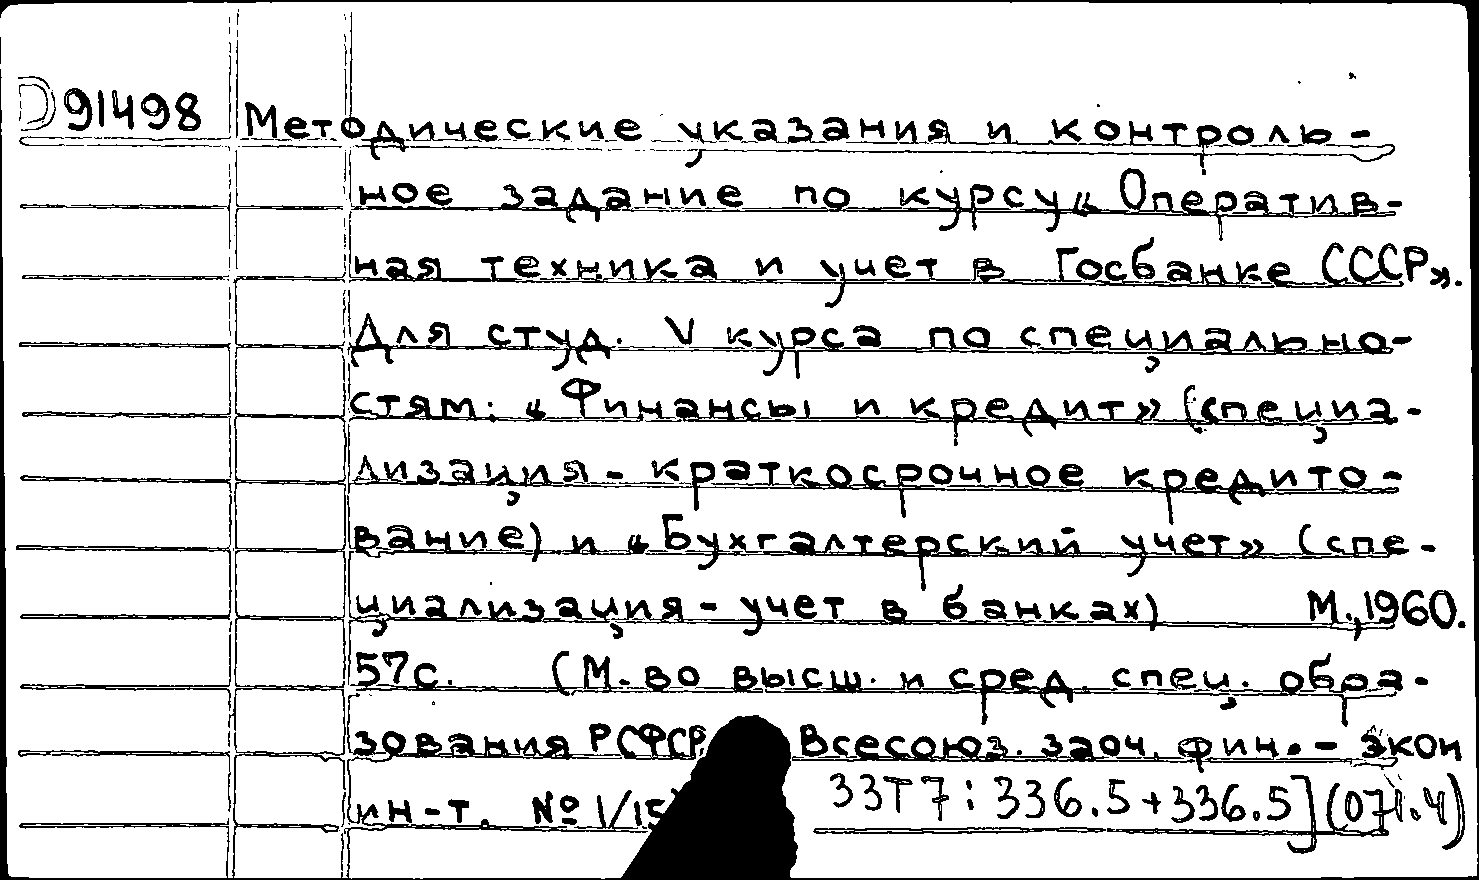 D91498 Методические указания и контроль-
ное задание по курсу „Оператив-
ная техника и учет в Госбанке СССР».
Для студ. V курса по специально-
стям: „Финансы и кредит» (специа-
лизация - краткосрочное кредито-
вание) и „Бухгалтерский учет» (спе-
циализация - учет в банках) М., 1960.
57с. (М-во высш. и сред. спец. обра-
зования РСФСР Всесоюз. заоч. фин. - экон
ин-т. № 1/15
33Т7:336.5+336.5](071.4)